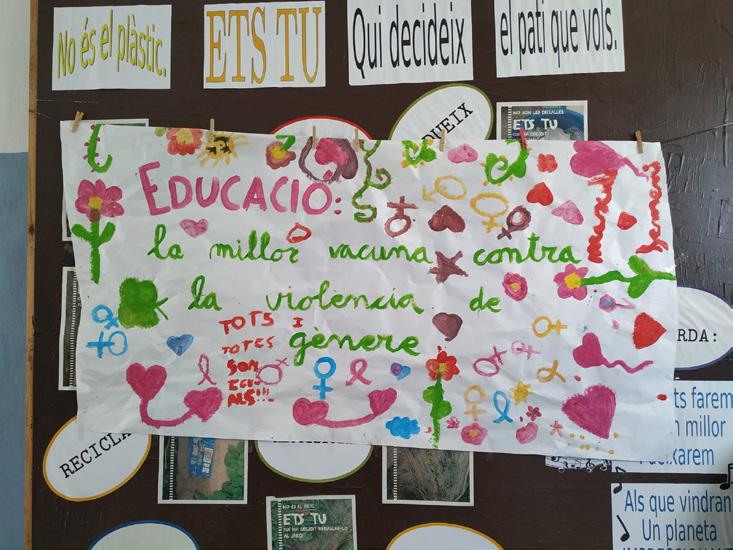 No és el plàstic.
ETS TU
Qui decideix
el pati que vols.
DUEIX
NO SON LES DEIXALLES
ETS TU
EDUCACIO:
la millor vacuna contra
la violencia de
gènere
TOTS I
TOTES
SOM
IGU-
ALS!!!
RECICLA
RDA:
ts farem
n millor
ixarem
Als que vindran
Un planeta
ETS TU
AL JARDI